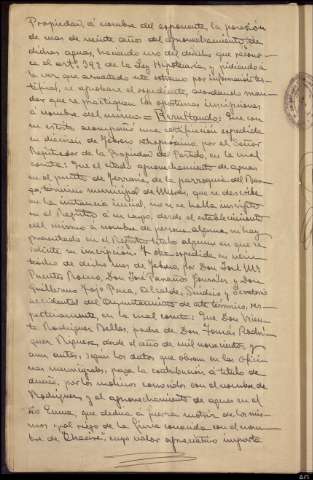 Propiedad á nombre del exponente, la posesión
de mas de veinte años del aprovechamiento de
dichas aguas, haciendo uso del derecho que recono-
ce el artº 392 de la Ley Hipotecaria, y pidiendo á
la vez que acreditado este extremo por información tes-
tifical, se aprobase el expediente, acordando man-
dar que se practiquen las oportunas inscripciones
á nombre del mismo = Resultando: Que con
su escrito acompañó una certificación expedida
en dieciseis de Febrero, por el Señor
Registrador de la Propiedad del Partido, en la cual
consta: Que el citado aprovechamiento de aguas
en el punto de de la parroquia del
término municipal de que se describe
en la instancia inicial, no se halla inscrito
en el Registro á su cargo, desde el establecimiento
del mismo á nombre de persona alguna, ni hay
presentado en el Registro título alguno en que se
solicite su inscripción. Y otra expedida en vein-
ticuatro de dicho mes de Febrero, por Don José Mª
Puertas Don José González y Don
Guillermo Alcalde, Síndico y Secretario
accidental del Ayuntamiento de este término, res-
pectivamente en la cual consta: Que Don Vicen-
te Rodríguez padre de Don Tomás Rodrí-
guez desde el año de mil novecientos, y
aun antes, según los datos que obran en las ofici-
nas municipales, paga la contribución á título de
dueño, por los molinos conocidos con el nombre de
Rodríguez y el aprovechamiento de aguas en el
río que dedica á fuerza motriz de los mis-
mos y al riego de la finca conocida con el nom-
bre de cuyo valor aproximativo importa